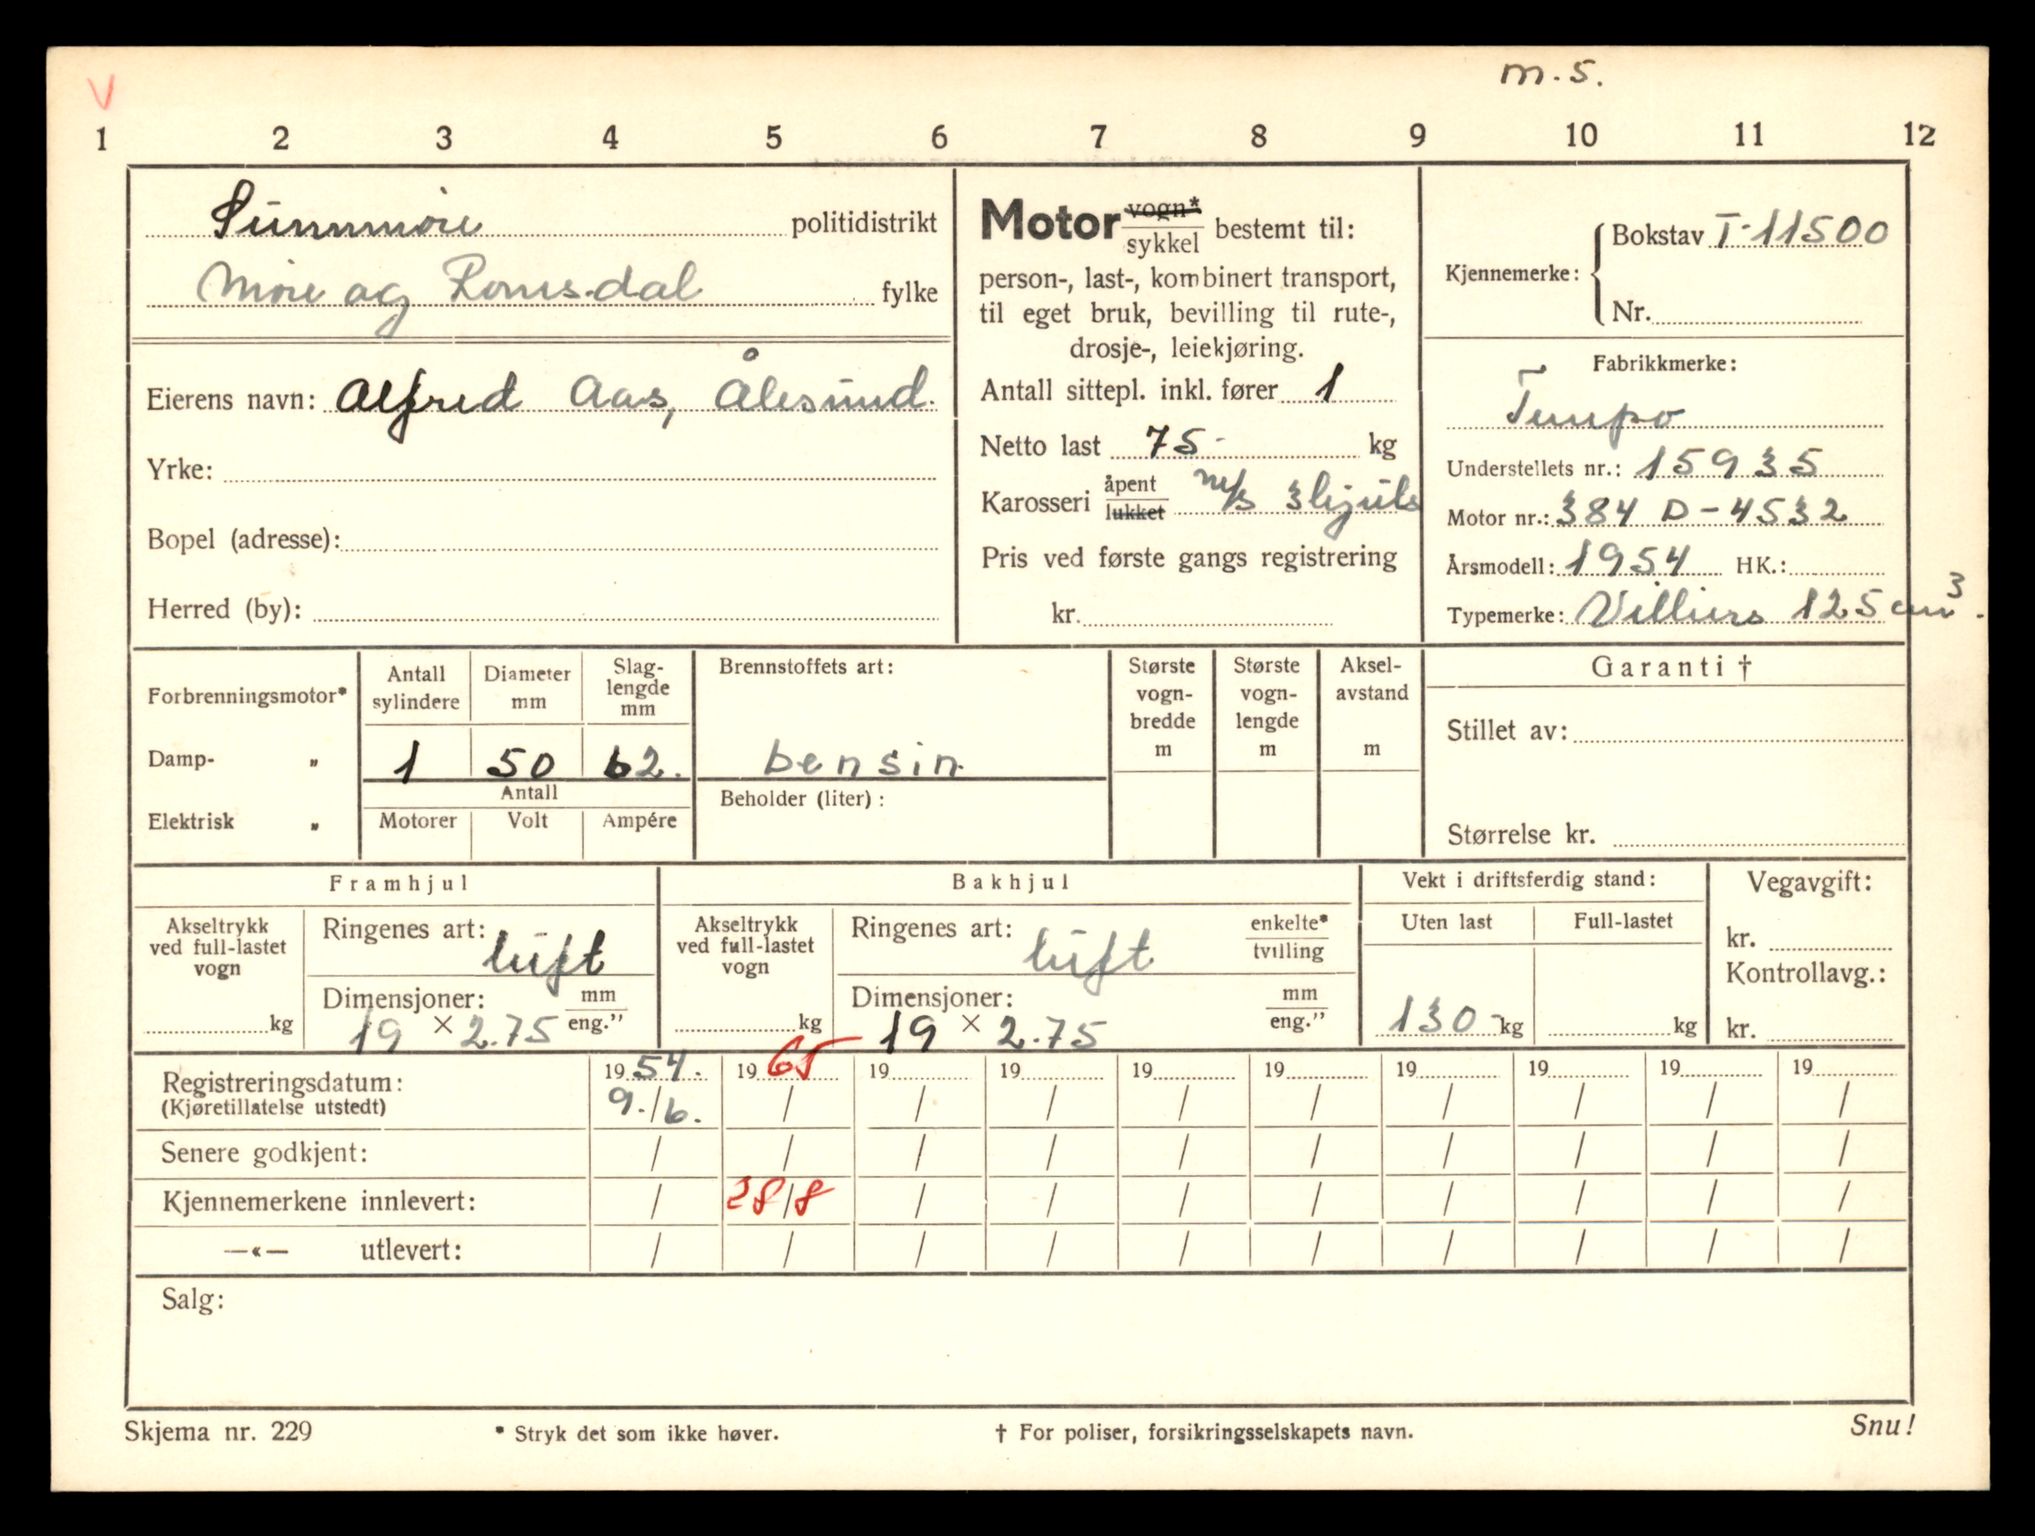 V
m.s.
1 2 3 4 5 6 7 8 9 10 11 12
Sunnmøre politidistrikt
Møre og Romsdal fylke
Eierens navn: Alfred Aas, Ålesund.
Yrke:
Bopel (adresse):
Herred (by):
Motor vogn* / sykkel bestemt til:
person-, last-, kombinert transport,
til eget bruk, bevilling til rute-,
drosje-, leiekjøring.
Antall sittepl. inkl. fører 1
Netto last 75- kg
Karosseri åpent / lukket m/s 3hjuls
Pris ved første gangs registrering
kr.
Kjennemerke: Bokstav T-11500
Nr.
Fabrikkmerke:
Tempo
Understellets nr.: 15935
Motor nr.: 384 D-4532
Årsmodell: 1954 HK.:
Typemerke: Villiers 125 cm³.
Forbrenningsmotor*
Damp- „
Elektrisk „
Antall sylindere
Diameter mm
Slag-lengde mm
1 50 62.
Antall
Motorer Volt Ampére
Brennstoffets art:
bensin
Beholder (liter):
Største vogn-bredde m
Største vogn-lengde m
Aksel-avstand m
Garanti †
Stillet av:
Størrelse kr.
Framhjul
Akseltrykk ved full-lastet vogn
kg
Ringenes art: luft
Dimensjoner: mm / eng."
19 × 2.75
Bakhjul
Akseltrykk ved full-lastet vogn
kg
Ringenes art: luft enkelte* / tvilling
Dimensjoner: mm / eng."
19 × 2.75
Vekt i driftsferdig stand:
Uten last Full-lastet
130- kg kg
Vegavgift:
kr.
Kontrollavg.:
kr.
Registreringsdatum: 1954. 1965 19 19 19 19 19 19 19 19
(Kjøretillatelse utstedt) 9./6. / / / / / / / / /
Senere godkjent: / / / / / / / / / /
Kjennemerkene innlevert: / 28/8 / / / / / / / /
—«— utlevert: / / / / / / / / / /
Salg:
Skjema nr. 229 * Stryk det som ikke høver. † For poliser, forsikringsselskapets navn. Snu!